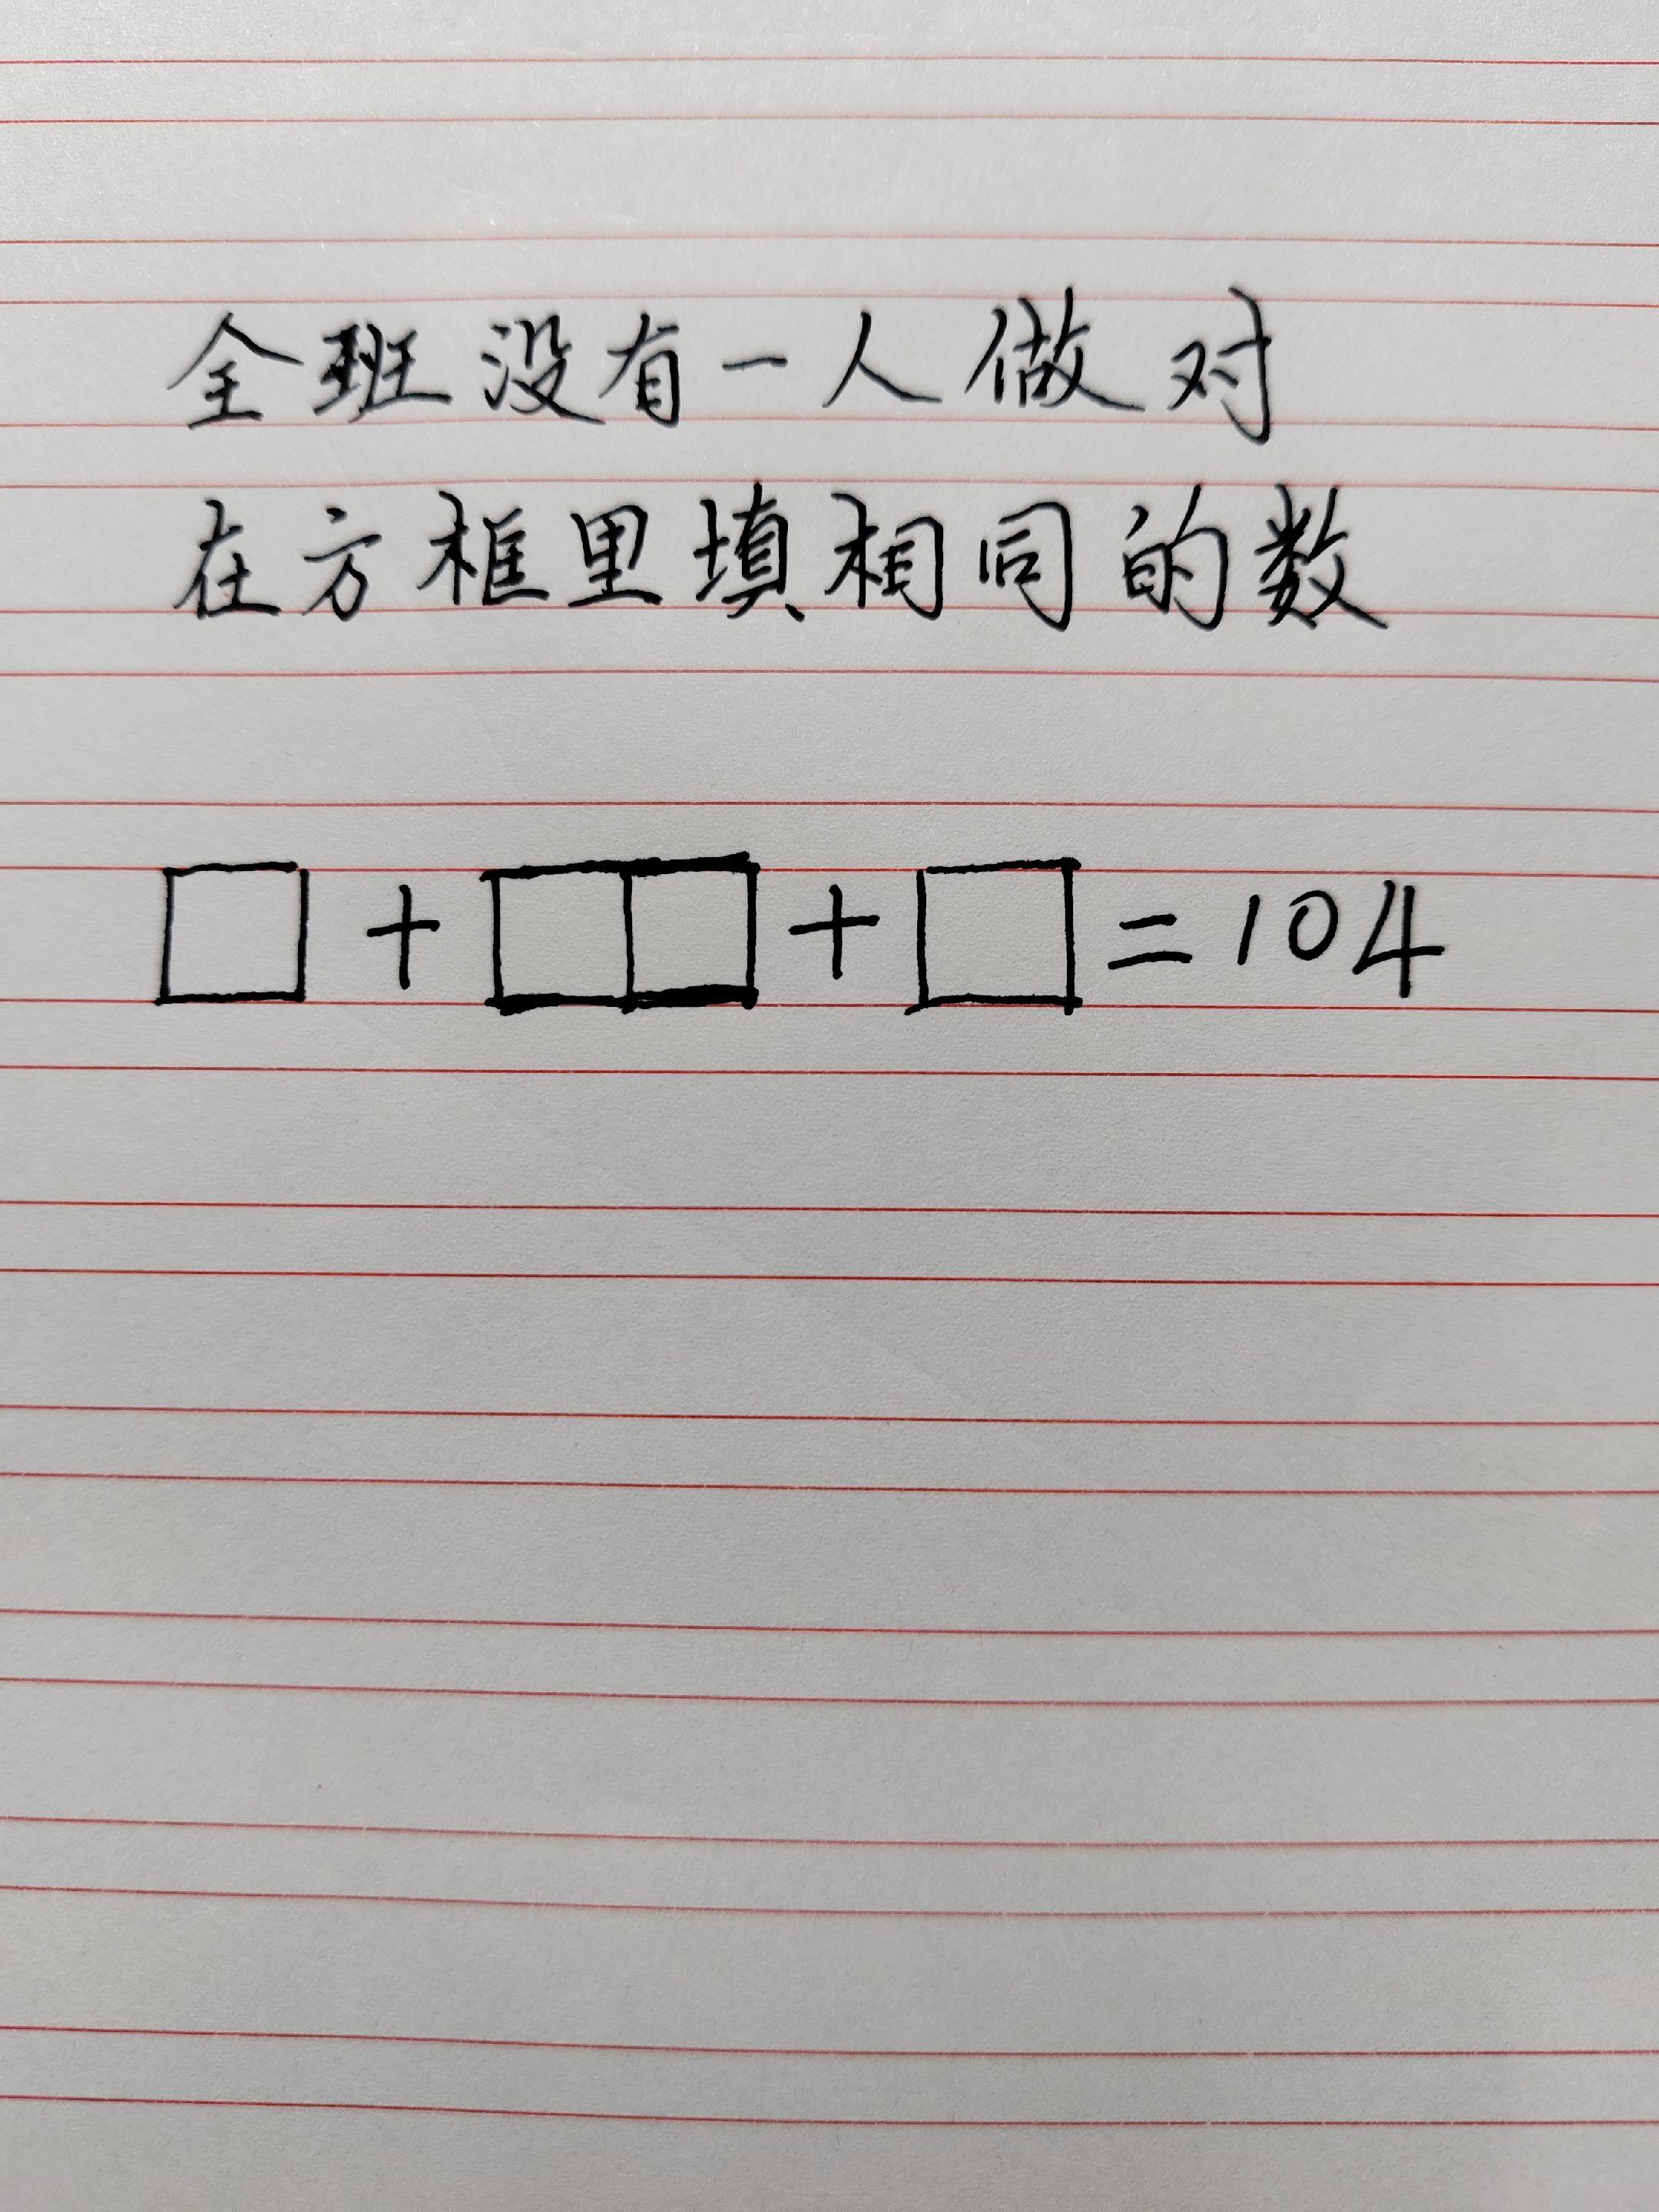 全班没有一人做对
在方框里填相同的数
□+□□+□=104